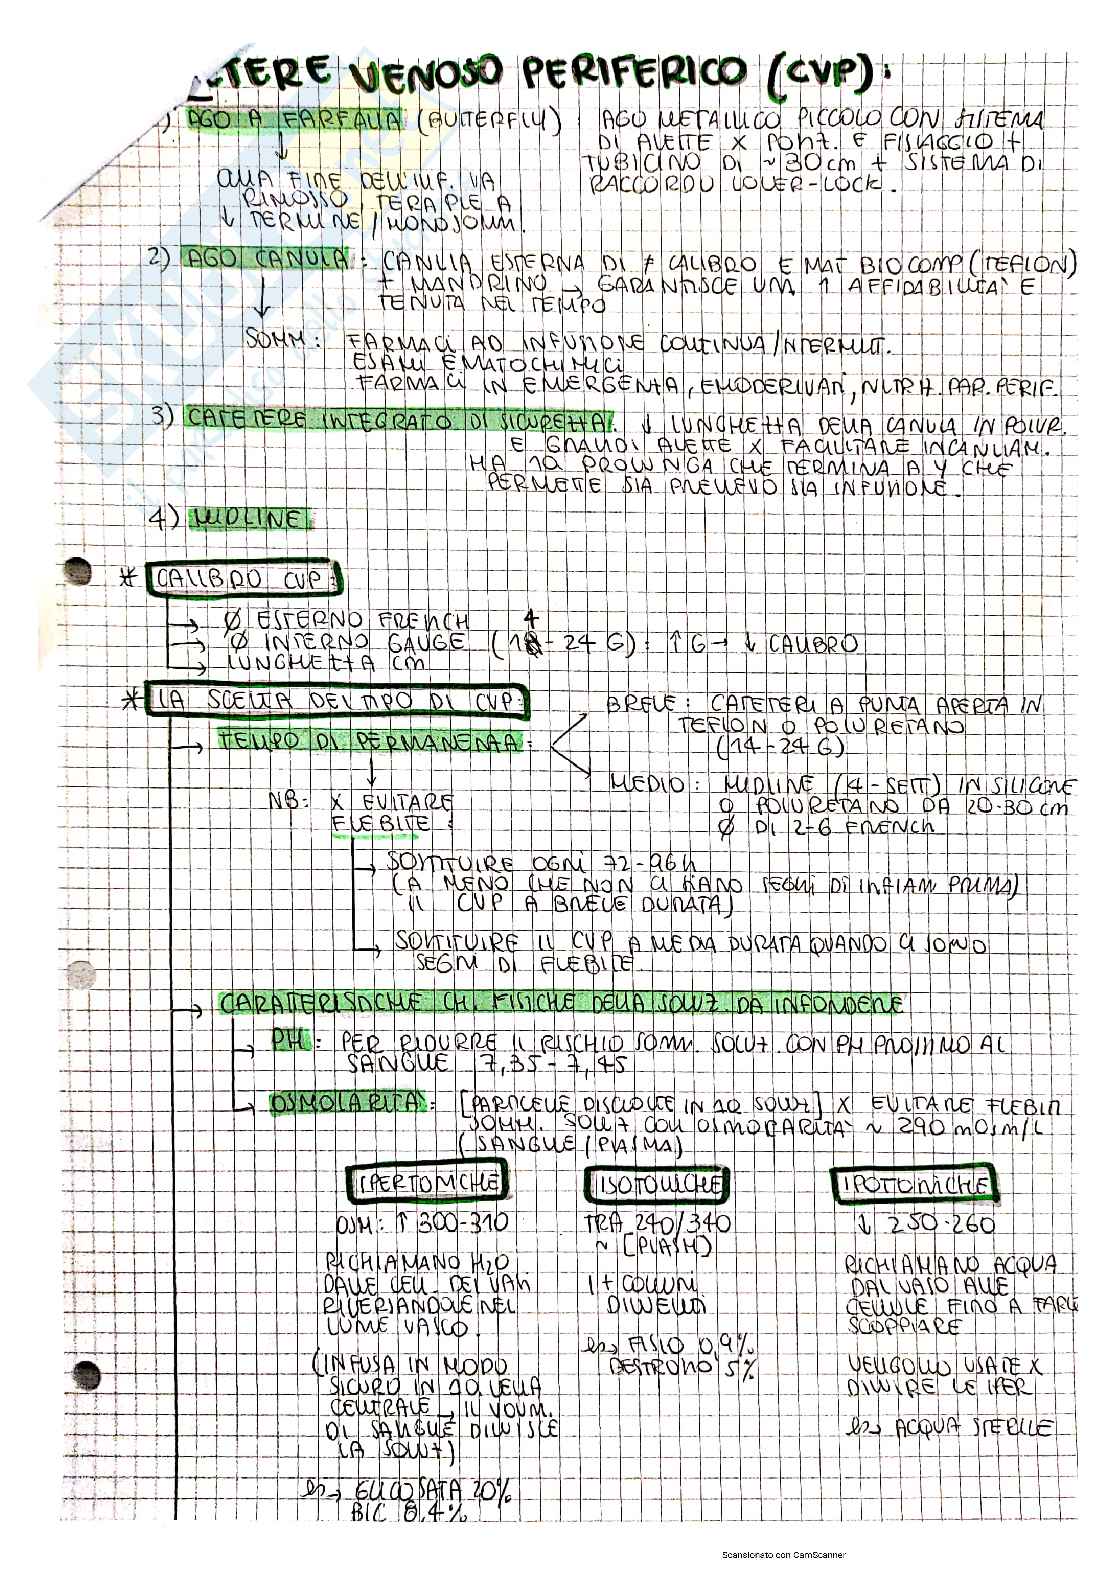 TERE VENOSO PERIFERICO (CVP):
1) AGO A FARFALLA (BUTTERFLY) : AGO METALLICO PICCOLO CON SISTEMA
DI ALETTE X PORT. E FISSAGGIO +
TUBICINO DI ~30 cm + SISTEMA DI
RACCORDO LOUER-LOCK.
ALLA FINE DELL'INF. VA
RIMOSSO, TERAPIE A
↓ TERMINE / MONOSOMM.
2) AGO CANULA : CANULA ESTERNA DI ≠ CALIBRO E MAT BIOCOMP (TEFLON)
+ MANDRINO → GARANTISCE UN ↑ AFFIDABILITA' E
TENUTA NEL TEMPO
SOMM : FARMACI AD INFUSIONE CONTINUA/INTERMITT.
ESAMI EMATOCHIMICI
FARMACI IN EMERGENZA, EMODERIVATI, NUTRIZ. PAR. PERIF.
3) CATETERE INTEGRATO DI SICUREZZA: ↓ LUNGHEZZA DELLA CANULA IN POLIUR.
E GRANDI ALETTE X FACILITARE INCANULAM.
HA 1A PROLUNGA CHE TERMINA A Y CHE
PERMETTE SIA PRELIEVO SIA INFUSIONE.
4) MIDLINE
* CALIBRO CVP :
→ Ø ESTERNO FRENCH
→ Ø INTERNO GAUGE (14-24 G) : ↑G → ↓ CALIBRO
→ LUNGHEZZA cm
* LA SCELTA DEL TIPO DI CVP:
→ TEMPO DI PERMANENZA :
BREVE : CATETERI A PUNTA APERTA IN
TEFLON O POLIURETANO
(14-24 G)
MEDIO : MIDLINE (4-SETT) IN SILICONE
O POLIURETANO DA 20-30 cm
Ø DI 2-6 FRENCH
NB: X EVITARE
FLEBITE :
→ SOSTITUIRE OGNI 72-96h
(A MENO CHE NON CI SIANO SEGNI DI INFIAM PRIMA)
IL CVP A BREVE DURATA)
→ SOSTITUIRE IL CVP A MEDIA DURATA QUANDO CI SONO
SEGNI DI FLEBITE
→ CARATTERISTICHE CHI. FISICHE DELLA SOLUZ. DA INFONDERE
→ PH : PER RIDURRE IL RISCHIO SOMM. SOLUZ. CON PH PROSSIMO AL
SANGUE 7,35-7,45
→ OSMOLARITA' : [PARTICELLE DISCIOLTE IN 1A SOLUZ] X EVITARE FLEBITI
SOMM. SOLUZ CON OSMOLARITA' ~ 290 mOsm/L
(SANGUE/PLASMA)
IPERTONICHE
OSM: ↑ 300-310
RICHIAMANO H2O
DALLE CELL. DEI VASI
RIVERSANDOLE NEL
LUME VASCO.
(INFUSA IN MODO
SICURO IN 1A VENA
CENTRALE, IL VOLUM.
DI SANGUE DILUISCE
LA SOLUZ)
es→ GLUCOSATA 20%
BIC 8,4%
ISOTONICHE
TRA 240/340
~ [PLASM)
I + COMUNI
DILUENTI
es→ FISIO 0,9%
DESTROSIO 5%
IPOTONICHE
↓ 250-260
RICHIAMANO ACQUA
DAL VASO ALLE
CELLULE FINO A FARLE
SCOPPIARE
VENGONO USATE X
DILUIRE LE IPER
es→ ACQUA STERILE
Scansionato con CamScanner